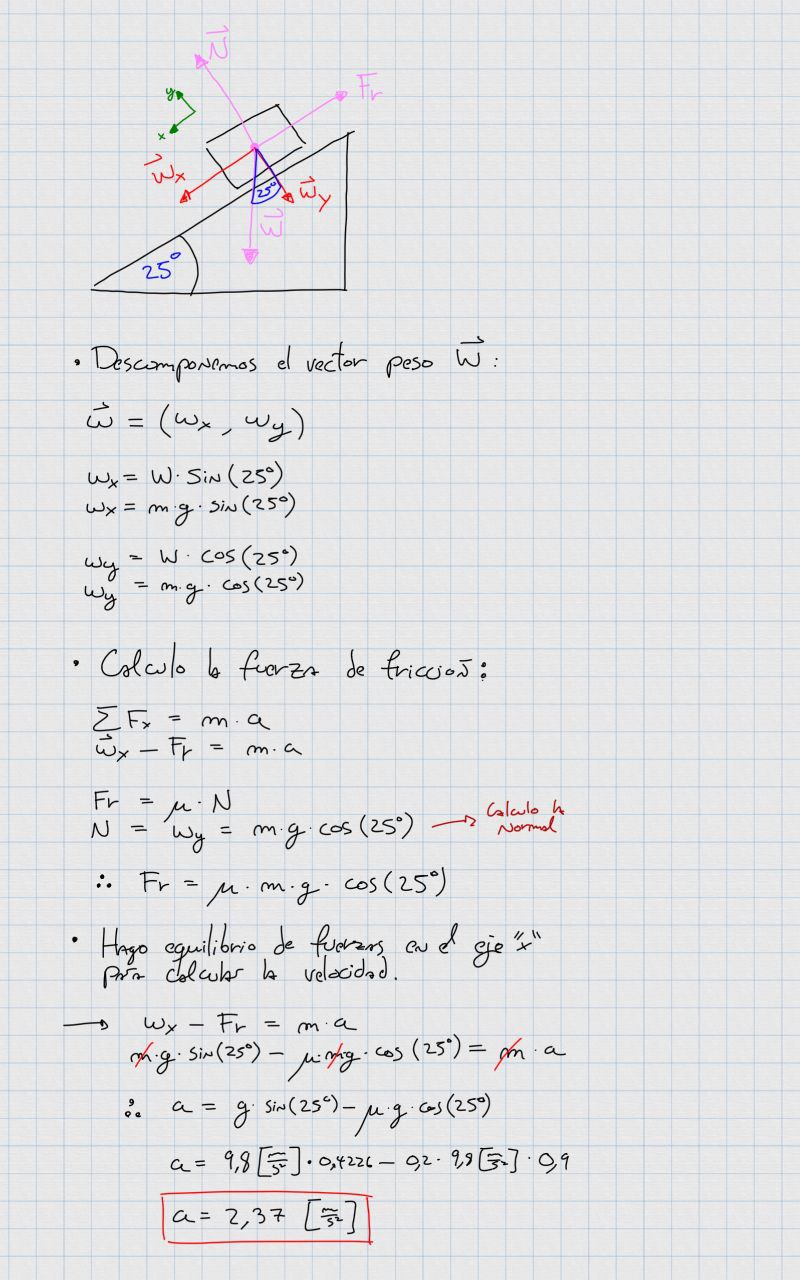 N⃗
Fr
y
x
w⃗x
25°
w⃗y
w⃗
25°
• Descomponemos el vector peso W⃗:
w⃗ = (wx, wy)
wx = W · sin(25°)
wx = m·g · sin(25°)
wy = W · cos(25°)
wy = m·g · cos(25°)
• Calculo la fuerza de fricción:
∑Fx = m·a
w⃗x − Fr = m·a
Fr = μ·N
N = wy = m·g·cos(25°) → Calculo la Normal
∴ Fr = μ·m·g·cos(25°)
• Hago equilibrio de fuerzas en el eje "x"
para calcular la velocidad.
→ wx − Fr = m·a
m·g·sin(25°) − μ·mg·cos(25°) = m·a
∴ a = g·sin(25°) − μ·g·cos(25°)
a = 9,8 [m/s²]·0,4226 − 0,2·9,8 [m/s²]·0,9
a = 2,37 [m/s²]